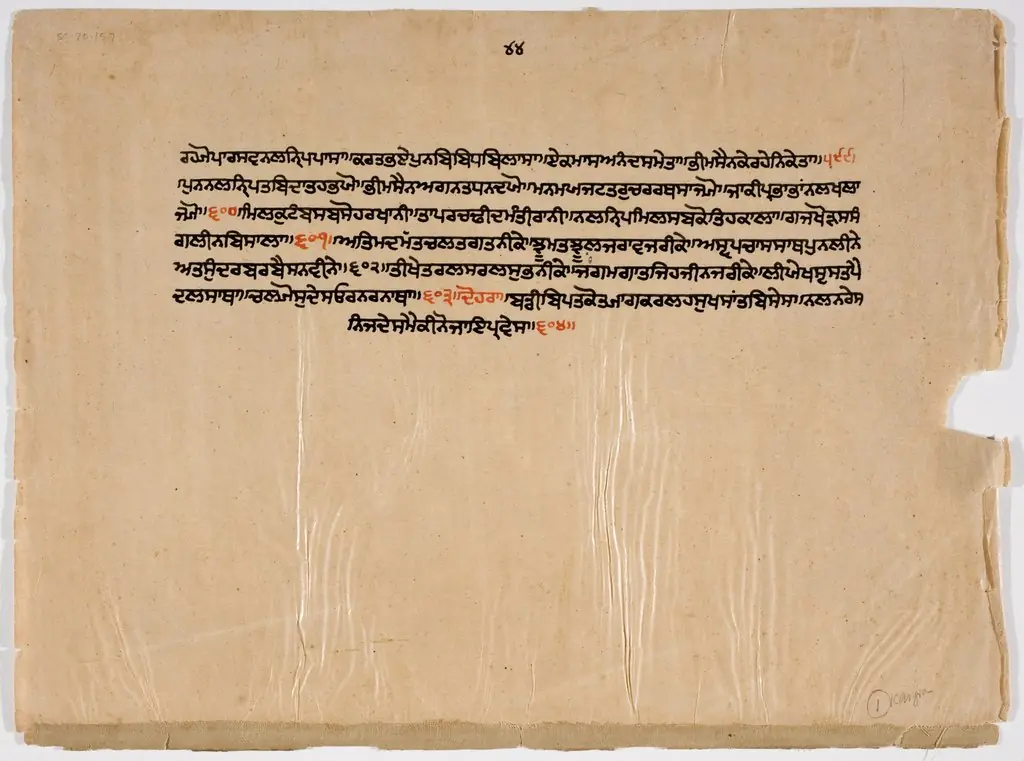 ੪੪
ਰਹਯੋਪਾਰਸਵਨਲਨ੍ਰਿਪਪਾਸਾ॥ਕਰਤਭਏਪੁਨਬਿਬਿਧਬਿਲਾਸਾ॥ਏਕਮਾਸਅਨੰਦਸਮੇਤਾ॥ਭੀਮਸੈਨਕੇਰਹੇਨਿਕੇਤਾ॥੫੯੯॥
ਪੁਨਨਲਨ੍ਰਿਪਤਬਿਦਾਤਹਭਯੋ॥ਭੀਮਸੈਨਅਗਨਤਧਨਦਯੋ॥ਮਨਮਖਜਟਤਰੁਚਰਰਥਸਾਜਯੋ॥ਜਾਕੀਪ੍ਰਭਾਭਾਂਨਲਖਲਾ
ਜਯੋ॥੬੦੦॥ਮਿਲਕੁਟੰਬਸਬਸੋਹਰਖਾਨੀ॥ਤਾਪਰਚਢੀਦਮੰਤੀਰਾਨੀ॥ਨਲਨ੍ਰਿਪਮਿਲਸਬਕੋਤਿਹਕਾਲਾ॥ਗਜਖੋੜਸਸੰ
ਗਲੀਨਬਿਸਾਲਾ॥੬੦੧॥ਅਤਿਮਦਮੱਤਚਲਤਗਤਨੀਕੇ॥ਝੂਮਤਝੂਲਜਰਾਵਜਰੀਕੇ॥ਅਸ੍ਵਪਚਾਸਸਾਥਪੁਨਲੀਨੇ
ਅਤਸੁੰਦਰਬਰਬੈਸਨਵੀਨੇ॥੬੦੨॥ਤੀਖੇਤਰਲਸਰਲਸੁਭਨੀਕੇ॥ਜਗਮਗਾਤਜਿਹਜੀਨਜਰੀਕੇ॥ਲੀਯੇਖਸ੍ਟਸਤਪੈ
ਦਲਸਾਥਾ॥ਚਲਯੋਸੁਦੇਸਓਰਨਰਨਾਥਾ॥੬੦੩॥ਦੋਹਰਾ॥ਬਡੀਬਿਪਤਕੋਤ੍ਯਾਗਕਰਲਹਸੁਖਸਾਂਤਬਿਸੇਸ॥ਨਲਨਰੇਸ
ਨਿਜਦੇਸਮੈਕੀਨੋਜਾਇਪ੍ਰਵੇਸ॥੬੦੪॥